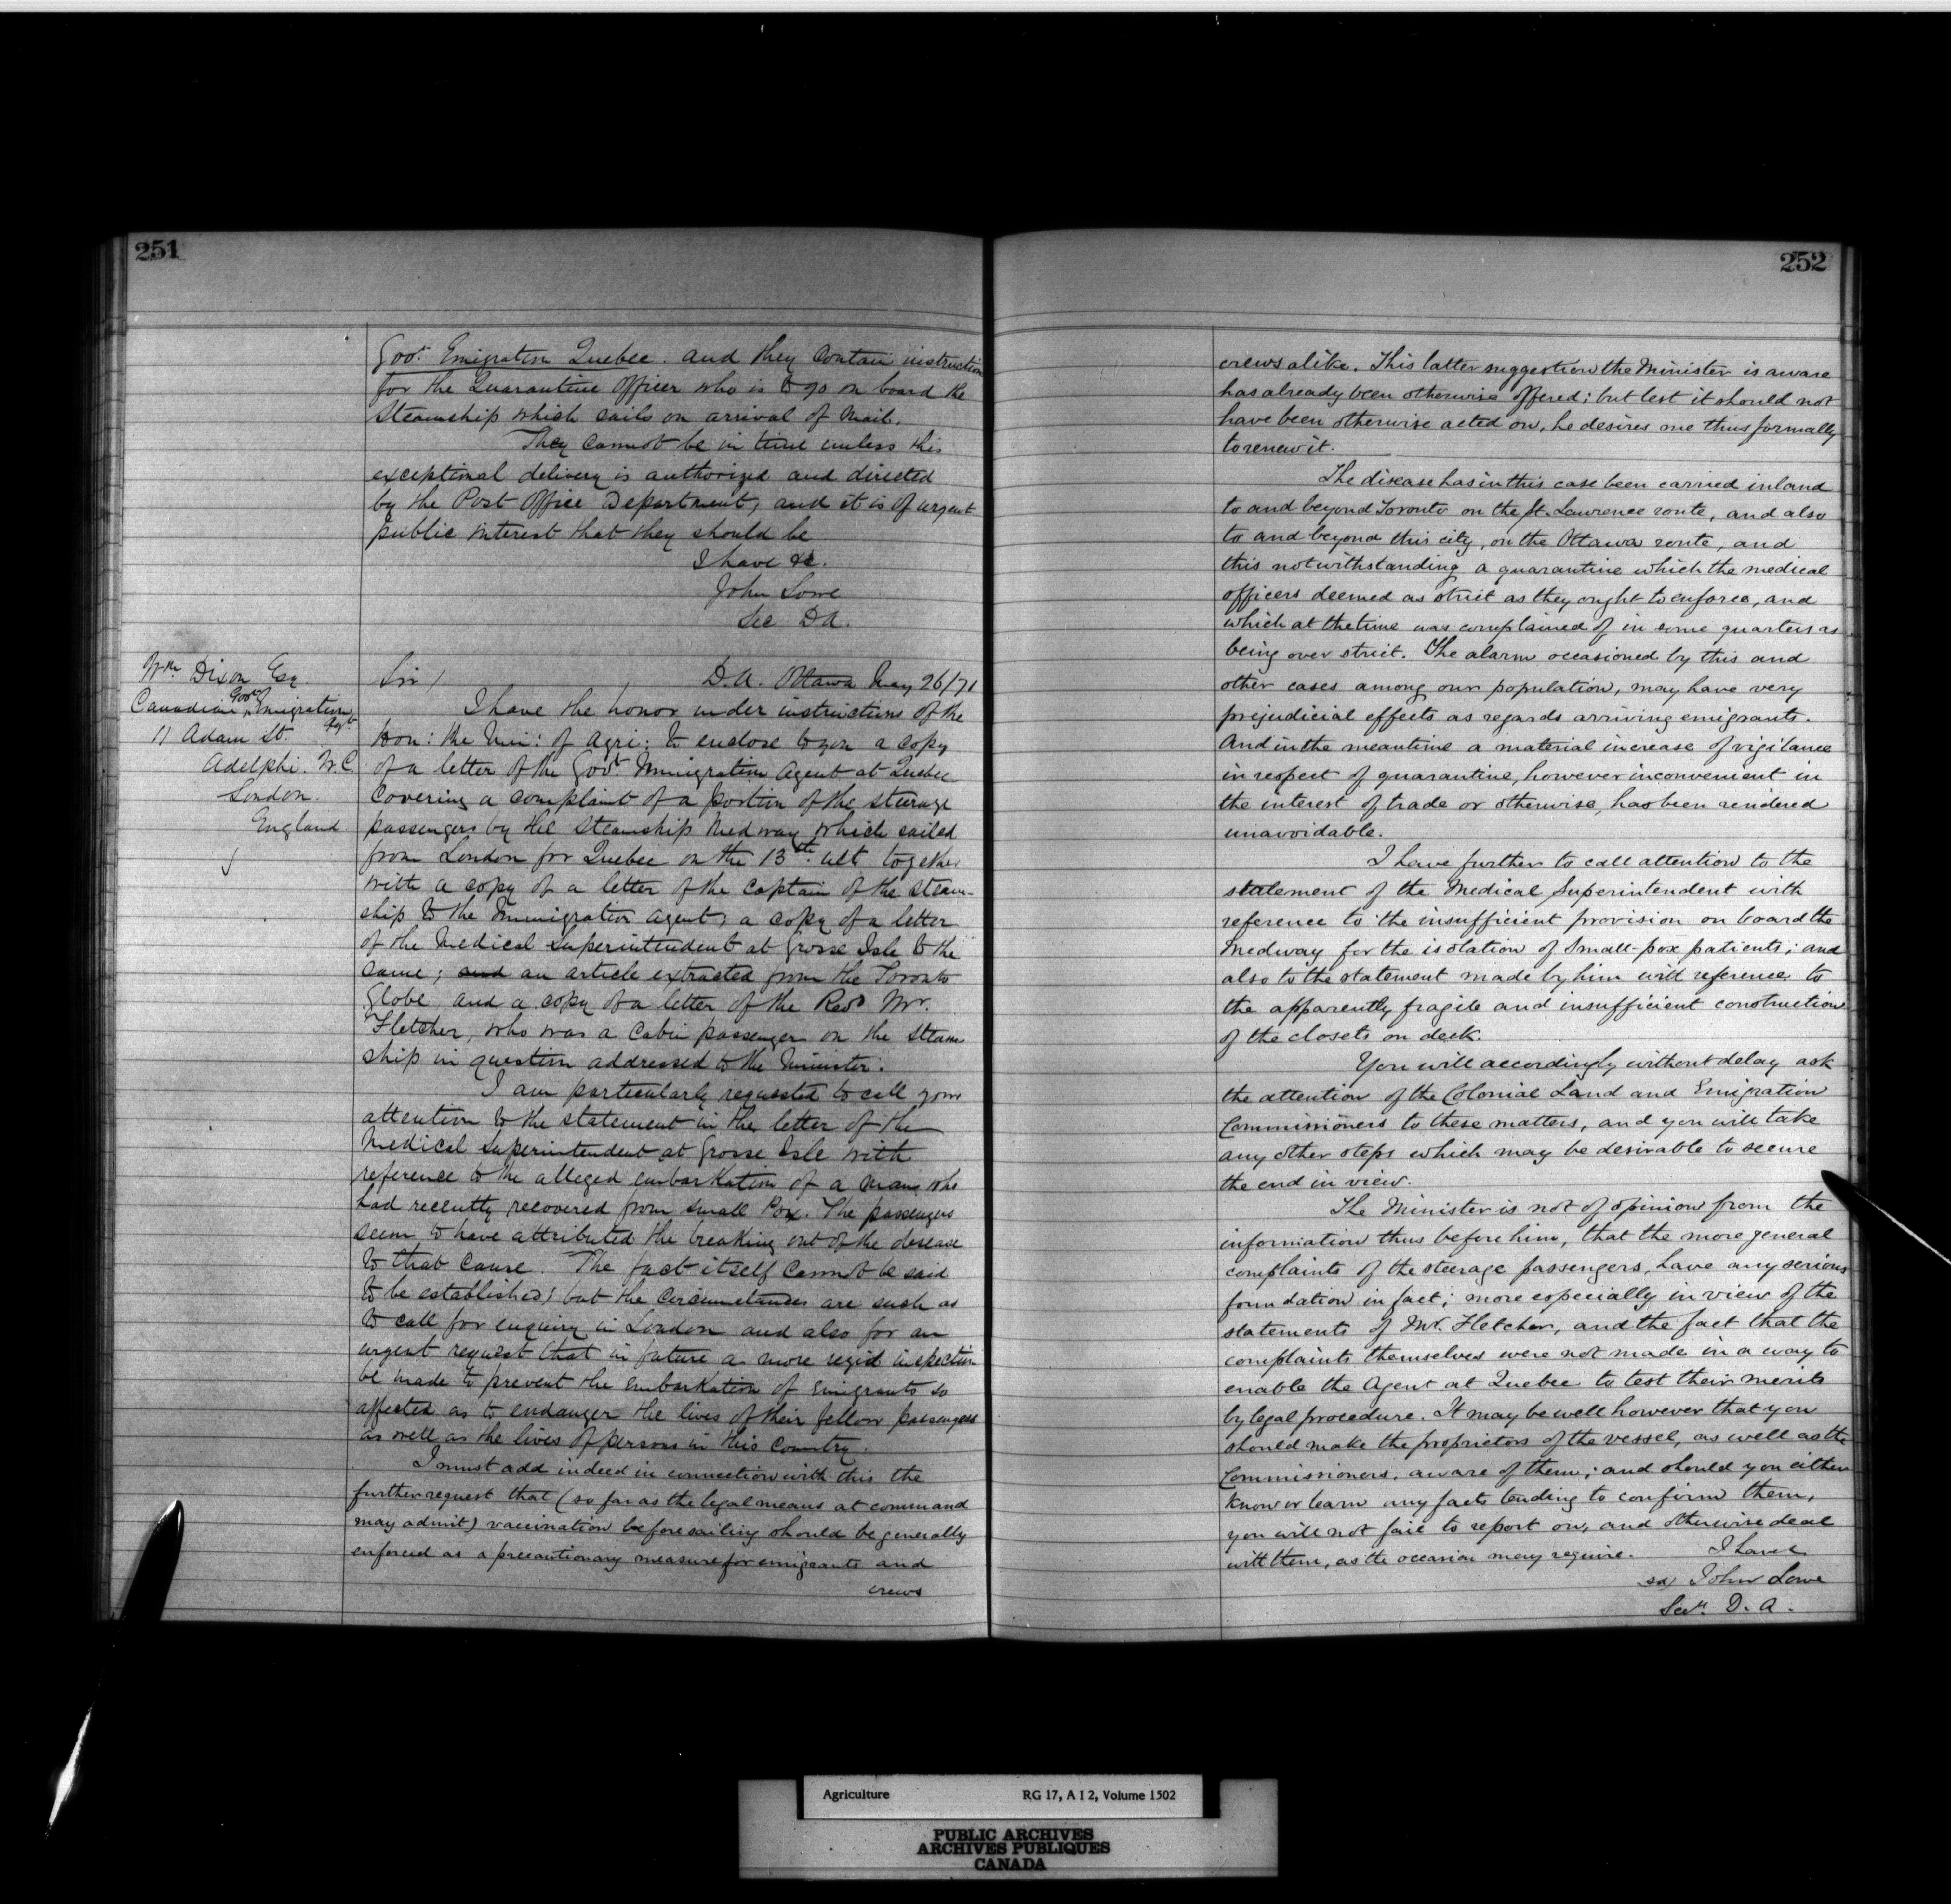 251
Govt. Emigration Quebec. and they contain instruction
for the Quarantine Officer who is to go on board the
Steamship which sails on arrival of Mail.
They cannot be in time unless this
exceptional delivery is authorized and directed
by the Post Office Department, and it is of urgent
public interest that they should be
I have &c.
John Lowe
Sec D.A.
Wm. Dixon Esq
Canadian Govt Emigration
Agt
11 Adam St.
Adelphi. W.C.
London.
England
Sir / D.A. Ottawa May 26/71
I have the honor under instructions of the
Hon: the Min: of Agri: to enclose to you a copy
of a letter of the Govt. Immigration Agent at Quebec
covering a complaint of a portion of the steerage
passengers by the Steamship Medway which sailed
from London for Quebec on the 13th ult together
with a copy of a letter of the Captain of the Steam-
ship to the Immigration Agent; a copy of a letter
of the Medical Superintendent at Grosse Isle to the
same; and an article extracted from the Toronto
Globe and a copy of a letter of the Revd Mr.
Fletcher, who was a Cabin passenger on the Steam
ship in question addressed to the Minister.
I am particularly requested to call your
attention to the statement in the letter of the
Medical Superintendent at Grosse Isle with
reference to the alleged embarkation of a man who
had recently recovered from Small Pox. The passengers
seem to have attributed the breaking out of the disease
to that cause. The fact itself cannot be said
to be established; but the circumstances are such as
to call for enquiry in London and also for an
urgent request that in future a more regid inspection
be made to prevent the embarkation of Emigrants so
affected as to endanger the lives of their fellow passengers
as well as the lives of persons in this Country.
I must add indeed in connection with this the
further request that (so far as the legal means at command
may admit) vaccination before sailing should be generally
enforced as a precautionary measure for emigrants and
crews
252
crews alike. This latter suggestion the Minister is aware
has already been otherwise offered; but lest it should not
have been otherwise acted on, he desires me thus formally
to renew it.
The disease has in this case been carried inland
to and beyond Toronto on the St. Lawrence route, and also
to and beyond this city, on the Ottawa route, and
this notwithstanding a quarantine which the medical
officers deemed as strict as they ought to enforce, and
which at the time was complained of in some quarters as
being over strict. The alarm occasioned by this and
other cases among our population, may have very
prejudicial effects as regards arriving emigrants.
And in the meantime a material increase of vigilance
in respect of quarantine, however inconvenient in
the interest of trade or otherwise, has been rendered
unavoidable.
I have further to call attention to the
statement of the Medical Superintendent with
reference to the insufficient provision on board the
Medway for the isolation of Small-pox patients; and
also to the statement made by him with reference to
the apparently fragile and insufficient construction
of the closets on deck.
You will accordingly without delay ask
the attention of the Colonial Land and Emigration
Commissioners to these matters, and you will take
any other steps which may be desirable to secure
the end in view.
The Minister is not of opinion from the
information thus before him, that the more general
complaints of the steerage passengers, have any serious
foundation in fact; more especially in view of the
statements of Mr. Fletcher, and the fact that the
complaints themselves were not made in a way to
enable the Agent at Quebec to test their merits
by legal procedure. It may be well however that you
should make the proprietors of the vessel, as well as the
Commissioners, aware of them; and should you either
know or learn any facts tending to confirm them,
you will not fail to report on, and otherwise deal
with them, as the occasion may require. I have &c
sd/ John Lowe
Secy. D. A.
Agriculture RG 17, A I 2, Volume 1502
PUBLIC ARCHIVES
ARCHIVES PUBLIQUES
CANADA